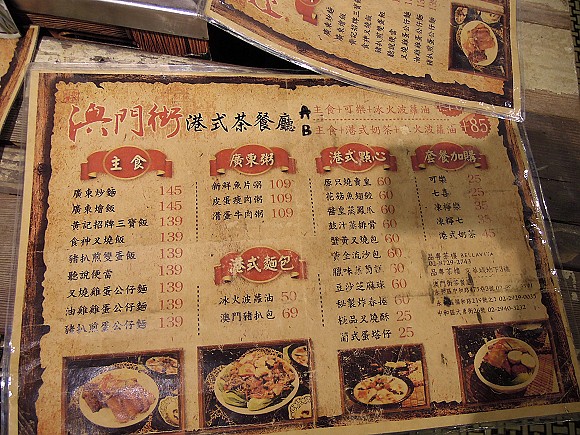 澳門街 港式茶餐廳
A 主食+可樂+冰火波蘿油
B 主食+港式奶茶+冰火波蘿油 +85
主食
廣東炒麵 145
廣東燴飯 145
黃記招牌三寶飯 139
食神叉燒飯 139
豬扒煎雙蛋飯 139
聽說便當 139
叉燒雞蛋公仔麵 139
油雞雞蛋公仔麵 139
豬扒煎蛋公仔麵 139
廣東粥
新鮮魚片粥 109
皮蛋瘦肉粥 109
滑蛋牛肉粥 109
港式麵包
冰火波蘿油 59
澳門豬扒包 69
港式點心
原只燒賣皇 60
花菇魚翅餃 60
醬皇蒸鳳爪 60
豉汁蒸排骨 60
蟹黃叉燒包 60
黃金流沙包 60
臘味蒸蘿蔔糕 60
豆沙芝麻球 60
秘製炸春捲 60
極品叉燒酥 25
葡式蛋塔仔 25
套餐加購
可樂 25
七喜 25
凍檸樂 35
凍檸七 35
港式奶茶 45
品粵茶樓 BELLAVITA
02-8729-2743
澳門街茶餐廳